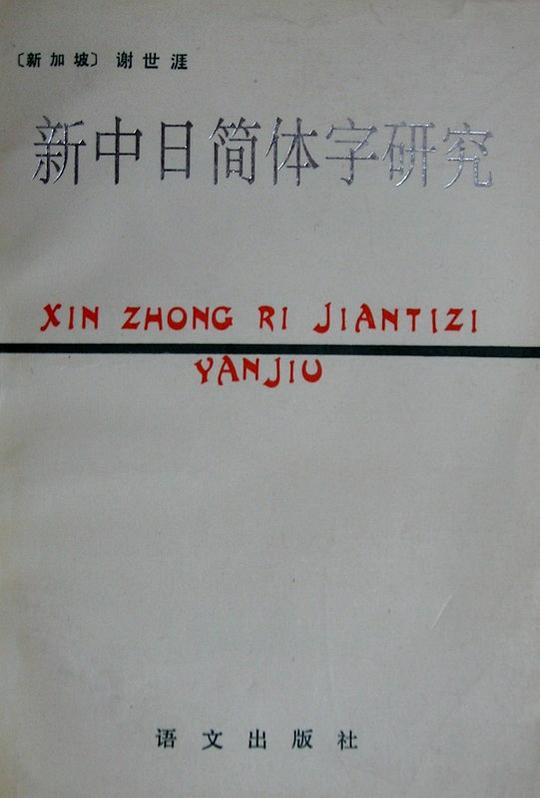 〔新加坡〕 谢世涯
新中日简体字研究
XIN ZHONG RI JIANTIZI
YANJIU
语文出版社